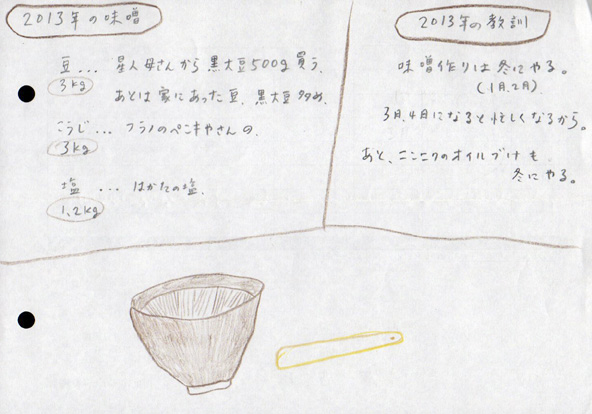 2013年の味噌
豆… 星人母さんから黒大豆500g買う。
3kg
あとは家にあった豆、黒大豆多め。
こうじ… フラノのペンキやさんの。
3kg
塩 … はかたの塩。
1.2kg
2013年の教訓
味噌作りは冬にやる。
(1月、2月)
3月、4月になると忙しくなるから。
あと、ニンニクのオイルづけも
冬にやる。